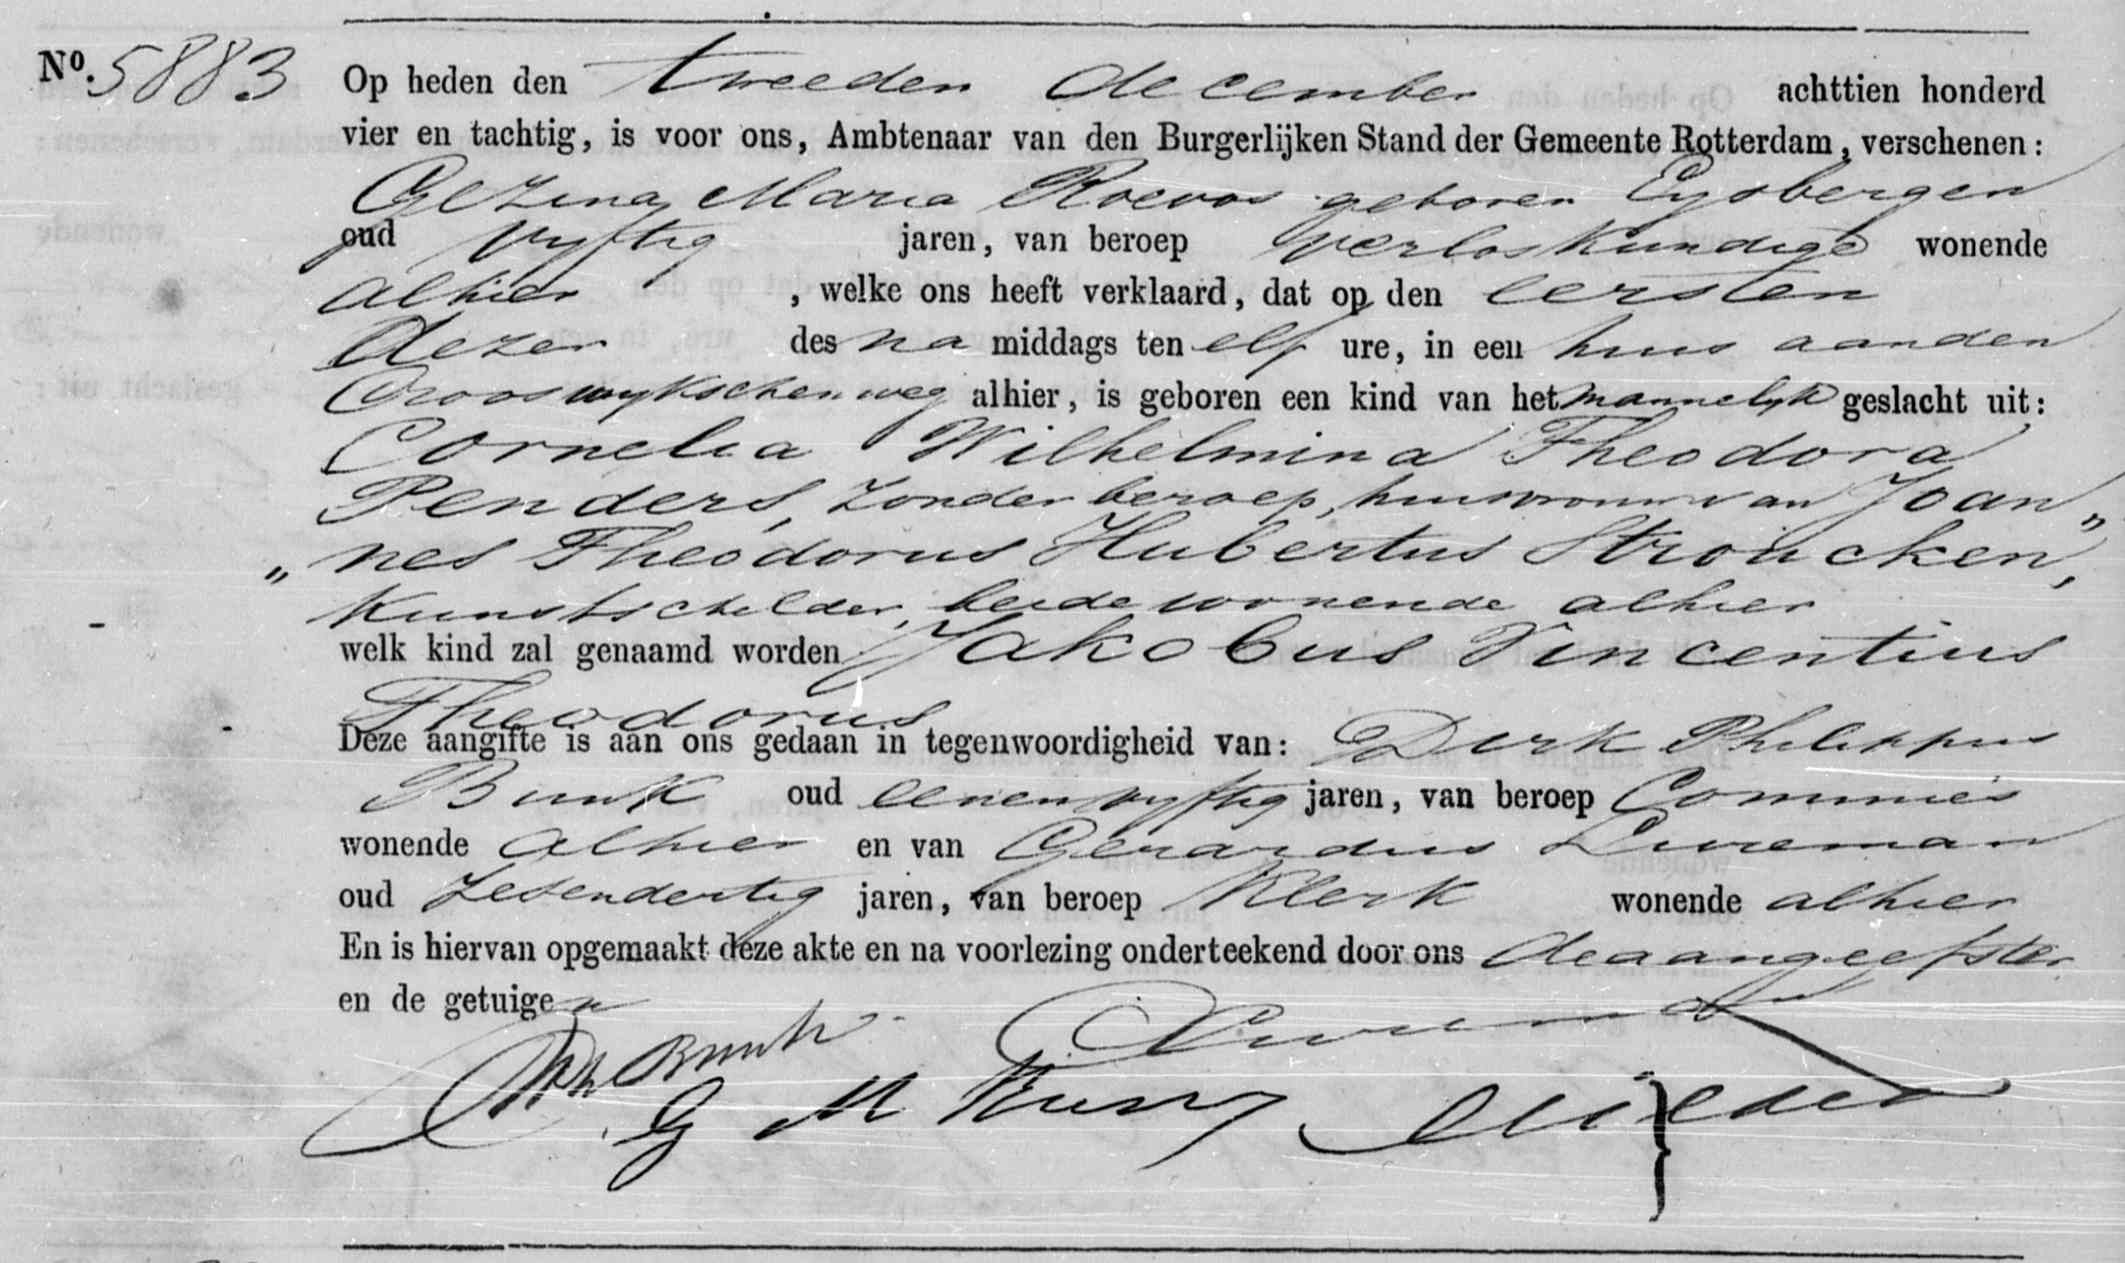 Nº. 5883 Op heden den tweeden december achttien honderd
vier en tachtig, is voor ons, Ambtenaar van den Burgerlijken Stand der Gemeente Rotterdam, verschenen:
Gezina Maria geboren Eysbergen
oud vyftig jaren, van beroep verloskundige wonende
alhier, welke ons heeft verklaard, dat op den eersten
dezer des na middags ten elf ure, in een huis aanden
Crooswykschenweg alhier, is geboren een kind van het mannelyk geslacht uit:
Cornelia Wilhelmina Theodora
Penders, zonder beroep, huisvrouw van Joan„
„nes Theodorus Hubertus Stroucken,
Kunstschilder, beide wonende alhier
welk kind zal genaamd worden Jakobus Vincentius
Theodorus
Deze aangifte is aan ons gedaan in tegenwoordigheid van: Dirk Philippus
Bunk oud eenenvyftig jaren, van beroep Commies
wonende alhier en van Gerardus
oud zevendertig jaren, van beroep Klerk wonende alhier
En is hiervan opgemaakt deze akte en na voorlezing onderteekend door ons de aangeefster
en de getuigen
Bunk
G M